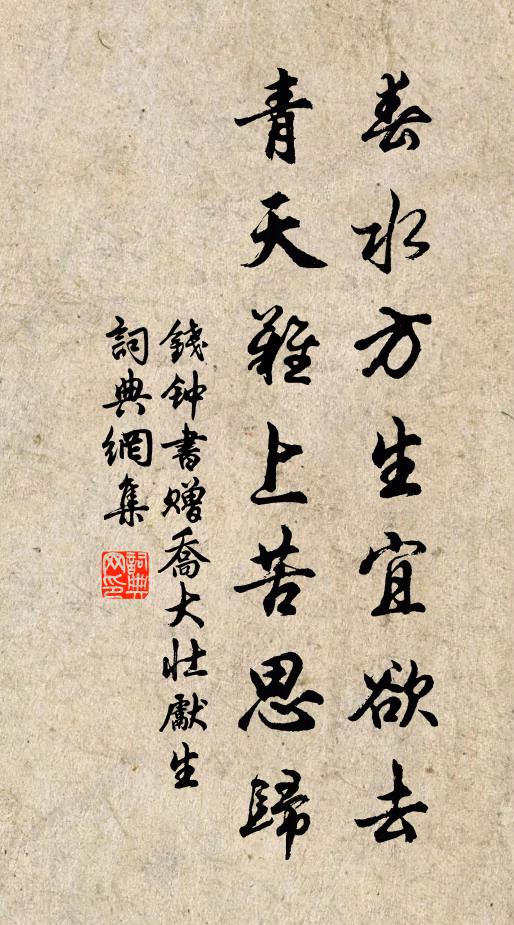 春水方生宜欲去
青天難上苦思歸
錢钟書赠喬大壮獻生
詞典網集
詞典网印